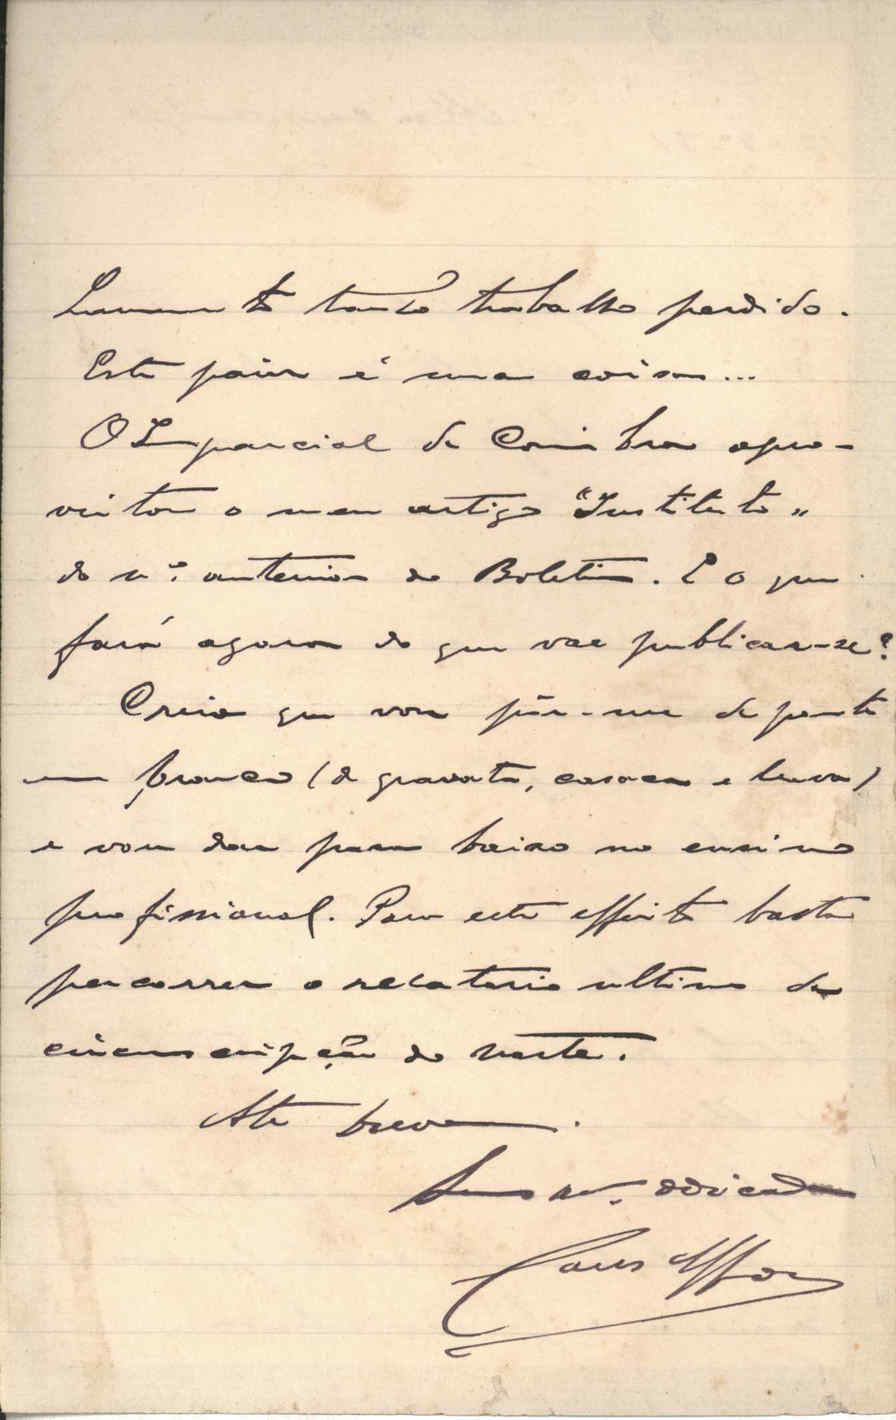 Lamento tanto trabalho perdido.
Este paiz é uma coisa...
O Imparcial de Coimbra apro-
veitou o meu artigo "Instituto"
do n.º anterior do Boletim. E o que
fará agora do que vae publicar-se?
Creio que vou pôr-me de ponto
em branco (de gravata, casaca e luva)
e vou dar para baixo no ensino
profissional. Para este effeito basta
percorrer o relatorio ultimo da
circumscripção do norte.
Até breve.
dedicado